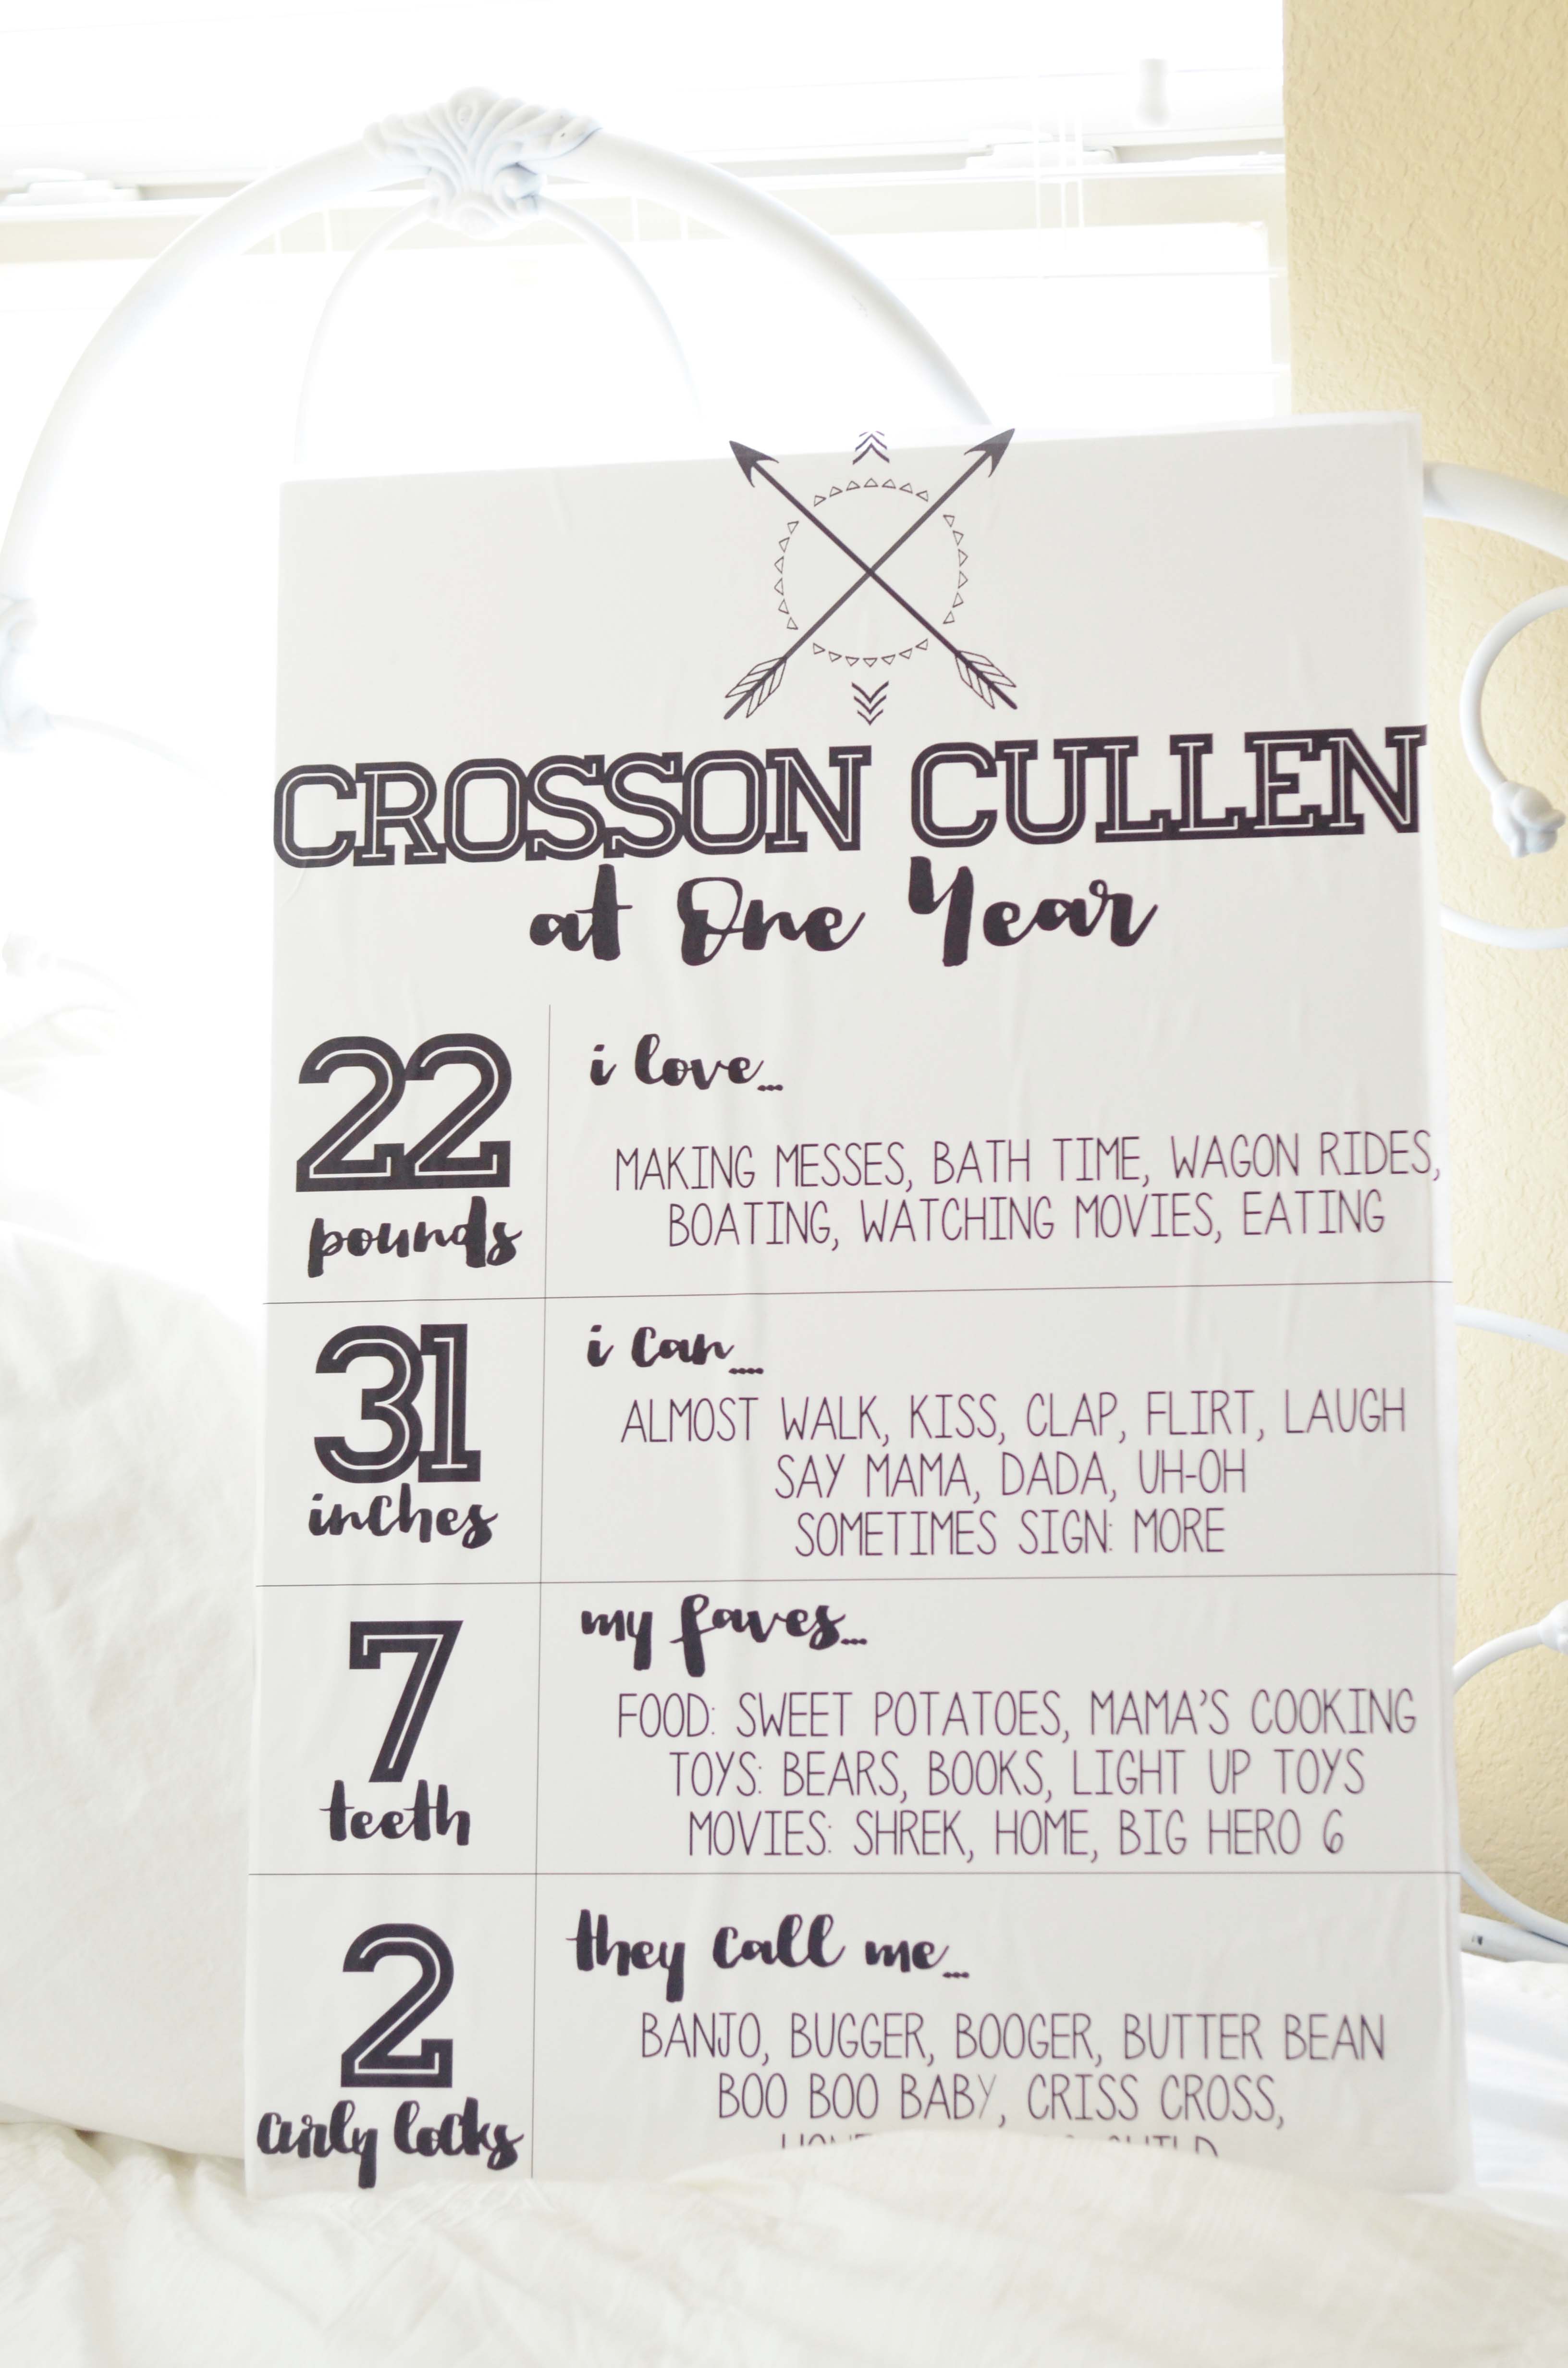 CROSSON CULLEN
at One Year
22
pounds
i love...
MAKING MESSES, BATH TIME, WAGON RIDES,
BOATING, WATCHING MOVIES, EATING
31
inches
i can....
ALMOST WALK, KISS, CLAP, FLIRT, LAUGH
SAY MAMA, DADA, UH-OH
SOMETIMES SIGN: MORE
7
teeth
my faves...
FOOD: SWEET POTATOES, MAMA'S COOKING
TOYS: BEARS, BOOKS, LIGHT UP TOYS
MOVIES: SHREK, HOME, BIG HERO 6
2
curly locks
they call me...
BANJO, BUGGER, BOOGER, BUTTER BEAN
BOO BOO BABY, CRISS CROSS,